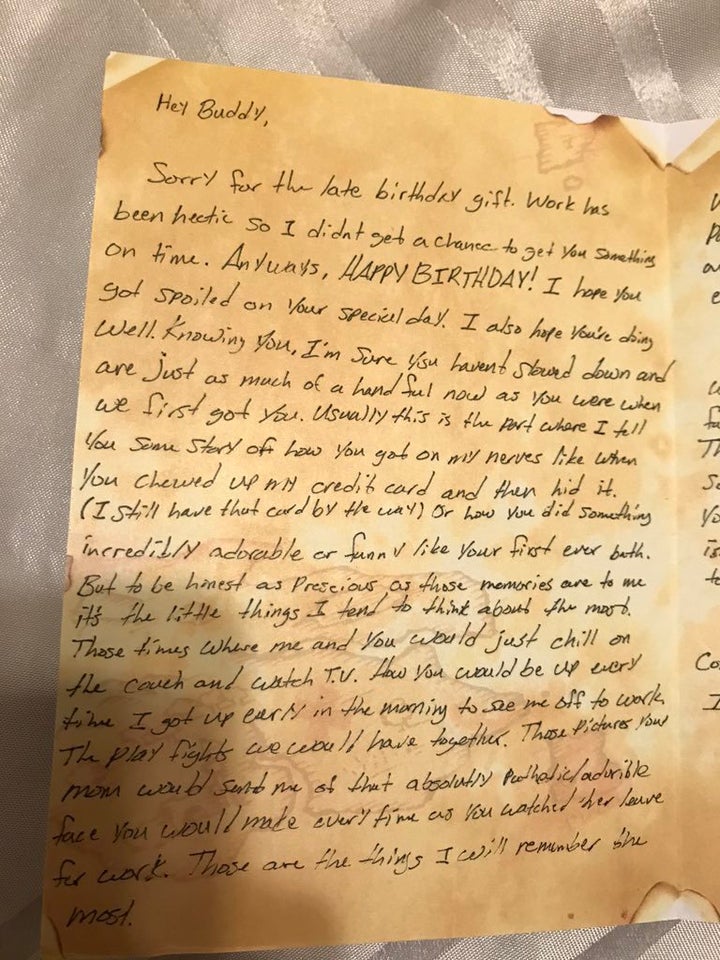 Hey Buddy,
Sorry for the late birthday gift. Work has
been hectic so I didnt get a chance to get you something
on time. Anyways, HAPPY BIRTHDAY! I hope you
got spoiled on your special day. I also hope you're doing
well. Knowing you, I'm sure you havent slowed down and
are just as much of a handful now as you were when
we first got you. Usually this is the part where I tell
you some story of how you got on my nerves like when
you chewed up my credit card and then hid it.
(I still have that card by the way) Or how you did something
incredibly adorable or funny like your first ever bath.
But to be honest as Prescious as those memories are to me
it's the little things I tend to think about the most.
Those times where me and you would just chill on
the couch and watch T.V. How you would be up every
time I got up early in the morning to see me off to work.
The play fights we would have together. Those pictures your
mom would send me of that absolutly pathetic/adorible
face you would make every time as you watched her leave
for work. Those are the things I will remember the
most.